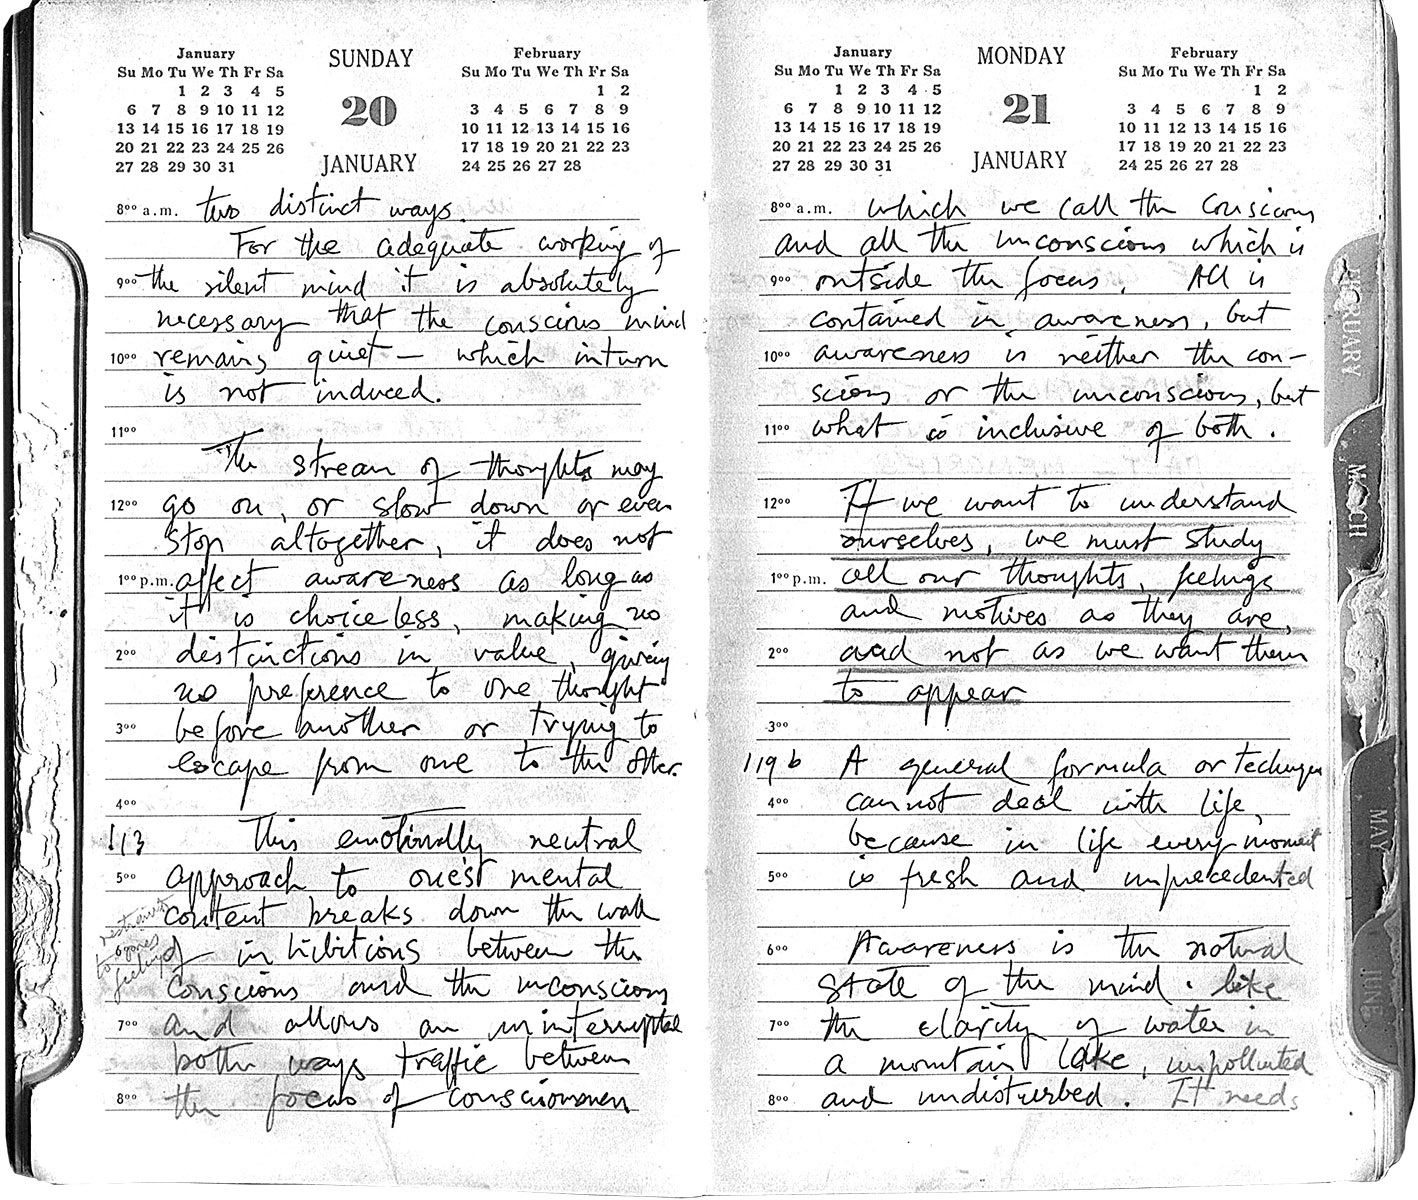 January
Su Mo Tu We Th Fr Sa
1 2 3 4 5
6 7 8 9 10 11 12
13 14 15 16 17 18 19
20 21 22 23 24 25 26
27 28 29 30 31
SUNDAY
20
JANUARY
February
Su Mo Tu We Th Fr Sa
1 2
3 4 5 6 7 8 9
10 11 12 13 14 15 16
17 18 19 20 21 22 23
24 25 26 27 28
8⁰⁰ a.m. two distinct ways.
For the adequate working of
9⁰⁰ the silent mind it is absolutely
necessary that the conscious mind
10⁰⁰ remains quiet — which inturn
is not induced.
11⁰⁰
The stream of thoughts may
12⁰⁰ go on, or slow down or even
stop altogether, it does not
1⁰⁰ p.m. affect awareness as long as
it is choiceless, making no
2⁰⁰ distinctions in value, giving
no preference to one thought
3⁰⁰ before another or trying to
escape from one to the other.
4⁰⁰
113 This emotionally neutral
5⁰⁰ approach to one's mental
content breaks down the wall
restraint to ones feelings
6⁰⁰ of inhibitions between the
conscious and the unconscious
7⁰⁰ and allows an uninterrupted
both ways traffic between
8⁰⁰ the focus of consciousness
January
Su Mo Tu We Th Fr Sa
1 2 3 4 5
6 7 8 9 10 11 12
13 14 15 16 17 18 19
20 21 22 23 24 25 26
27 28 29 30 31
MONDAY
21
JANUARY
February
Su Mo Tu We Th Fr Sa
1 2
3 4 5 6 7 8 9
10 11 12 13 14 15 16
17 18 19 20 21 22 23
24 25 26 27 28
8⁰⁰ a.m. which we call the conscious
and all the unconscious which is
9⁰⁰ outside the focus. All is
contained in awareness, but
10⁰⁰ awareness is neither the con-
scious or the unconscious, but
11⁰⁰ what is inclusive of both.
12⁰⁰ If we want to understand
ourselves, we must study
1⁰⁰ p.m. all our thoughts, feelings
and motives as they are,
2⁰⁰ and not as we want them
to appear
3⁰⁰
119 b A general formula or technique
4⁰⁰ cannot deal with life,
because in life every moment
5⁰⁰ is fresh and unprecedented
6⁰⁰ Awareness is the natural
state of the mind. like
7⁰⁰ the clarity of water in
a mountain lake, unpolluted
8⁰⁰ and undisturbed. It needs
MARCH
MAY
JUNE